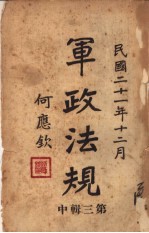 民國二十一年十二月
軍政法規
何應欽
第三輯中